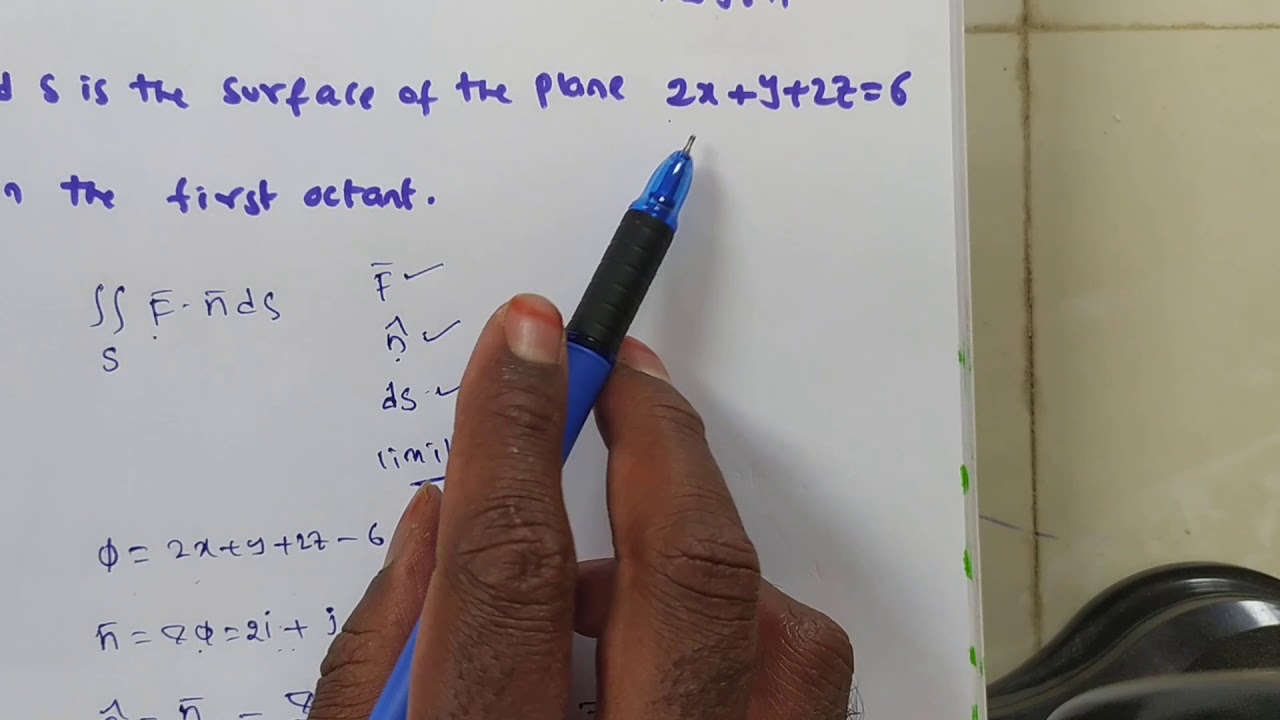 S is the surface of the plane 2x+y+2z=6
the first octant.
∬ F̄·n̄ ds
S
F̄ ✓
n̂ ✓
ds ✓
φ = 2x+y+2z-6
n̄ = ∇φ = 2i + j
n̂ = n̄ =